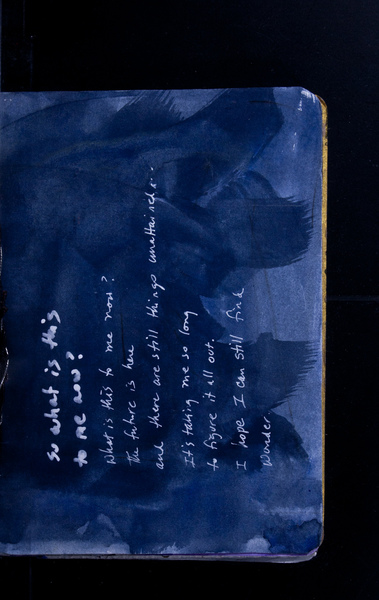 so what is this
to me now?
What is this to me now?
The future is here
and there are still things unattained...
It's taking me so long
to figure it all out.
I hope I can still find
wonder